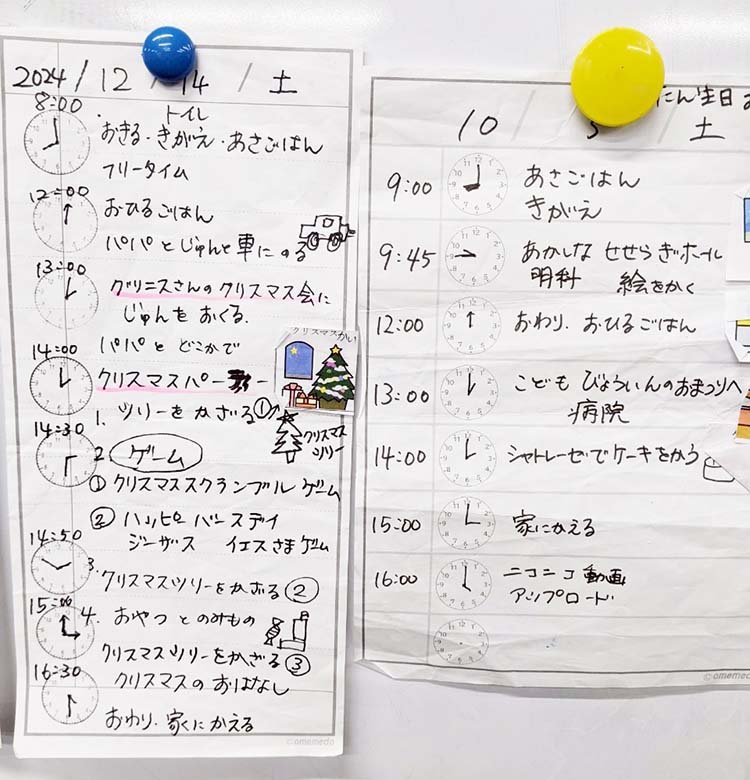 2024 / 12 / 14 / 土
8:00
トイレ
おきる・きがえ・あさごはん
フリータイム
12:00
おひるごはん
パパとじゅんと車にのる
13:00
グリニスさんのクリスマス会に
じゅんをおくる。
14:00
パパとどこかで
クリスマスかい
クリスマスパー ー
1. ツリーをかざる①
クリスマス
ツリー
14:30
2. ゲーム
① クリスマススクランブルゲーム
② ハッピーバースデイ
ジーザス イエスさまゲーム
14:50
3. クリスマスツリーをかざる②
15:00
4. おやつとのみもの
クリスマスツリーをかざる③
クリスマスのおはなし
16:30
おわり・家にかえる
©omemedo
たん生日
10 / 5 / 土
9:00
あさごはん
きがえ
9:45
あかしな せせらぎホール
明科 絵をかく
12:00
おわり。おひるごはん
13:00
こどもびょういんのおまつりへ
病院
14:00
シャトレーゼでケーキをかう
15:00
家にかえる
16:00
ニコニコ動画
アップロード
©omemedo